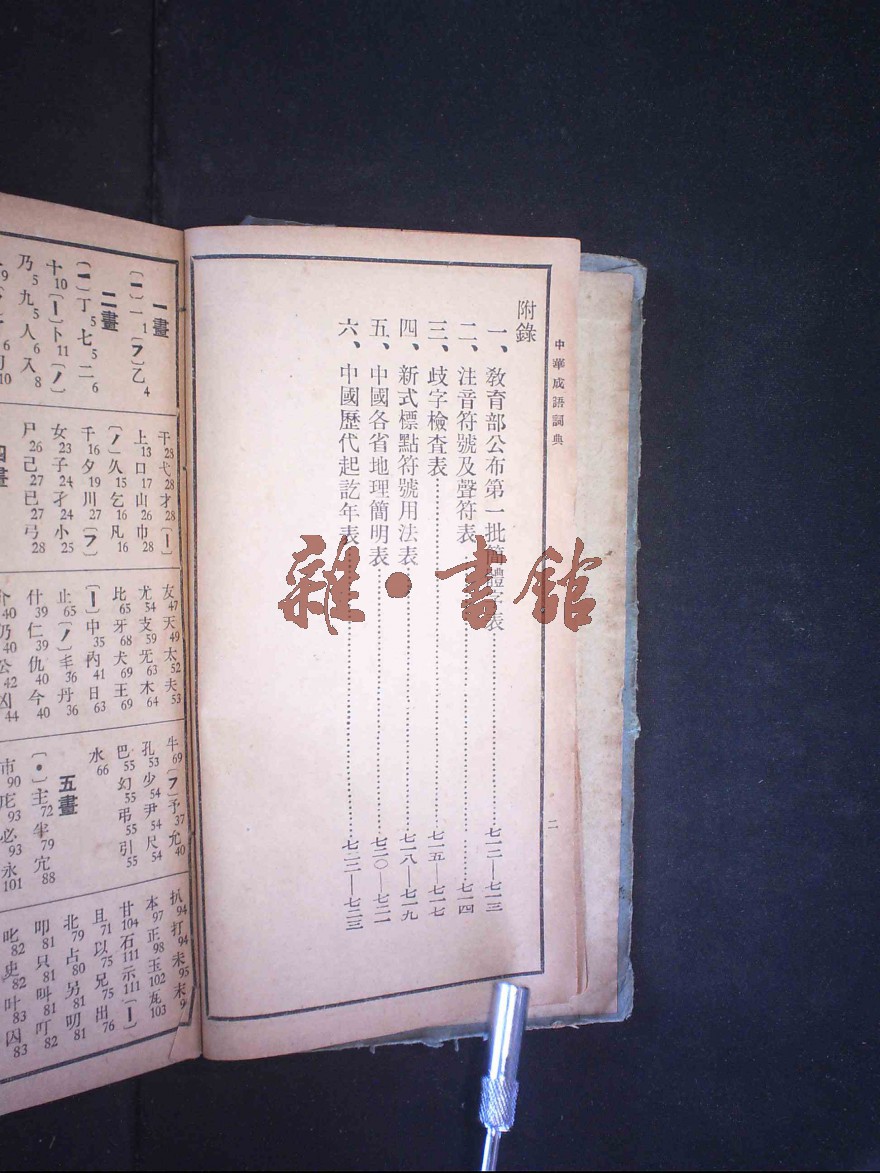 中華成語詞典
二
附錄
一、教育部公布第一批簡體字表……七一二—七一三
二、注音符號及聲符表……七一四
三、歧字檢查表……七一五—七一七
四、新式標點符號用法表……七一八—七一九
五、中國各省地理簡明表……七二〇—七二一
六、中國歷代起訖年表……七二二—七二三
雜•書館
一畫
〔一〕一1〔フ〕乙4
二畫
〔一〕丁5七5二6
十10〔丨〕卜11〔ノ〕
乃5九5人6入8
干28弋28才28〔丨〕
上13口17山26巾28
〔ノ〕久15乞16凡16
千16夕19川27〔フ〕
女23子24孑24小25
尸26己27已27弓28
四畫
友47天49太52夫53
尤54支59旡63木64
比65牙68犬69王69
〔丨〕中35內41日63
止65〔ノ〕丰36丹36
什39仁39仇40今40
介40仍40公42凶44
牛69〔フ〕予37允40
孔53少54尹54尺54
巴55幻55弔55引55
水66
五畫
〔•〕主72半79宂88
市90庀93必93永101
扒94打94未95末9
本97正98玉102瓦103
甘104石111示111〔丨〕
且71以75兄75出76
北79占80另81叨81
叩81只81叫81叮82
叱82史82叶83囚83